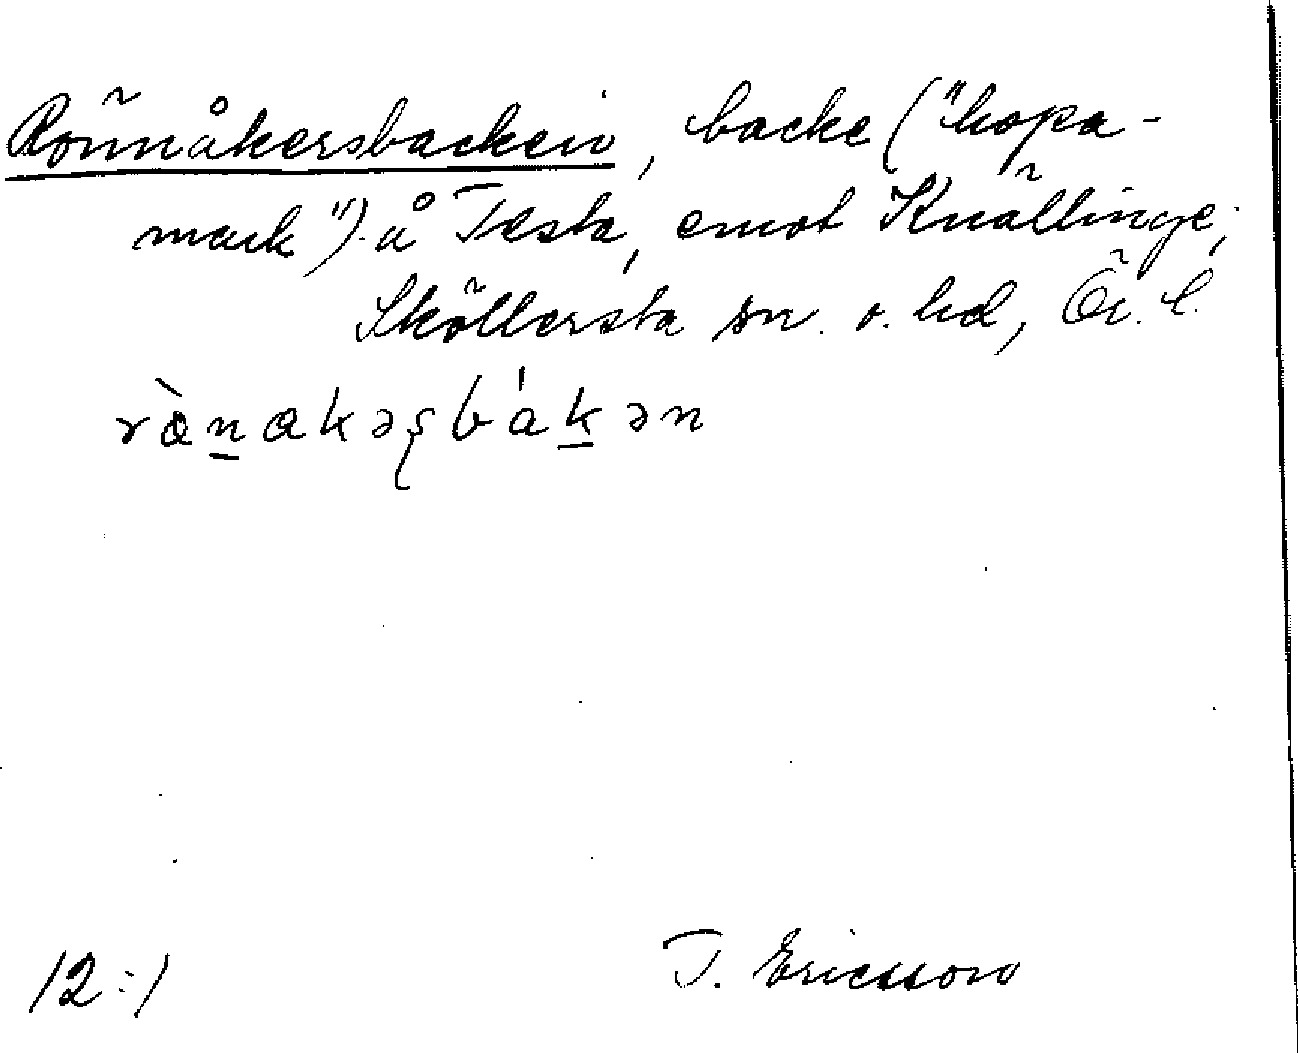 Rönnåkersbacken, backe ("hopa-
mark") å Testa, emot Knällinge,
Sköllersta sn. o. hd, Ör. l.
rə̀n̲akəʂbák̲ən
12:1 T. Ericsson